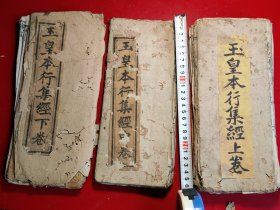 玉皇本行集經下卷
玉皇本行集經中卷
玉皇本行集經上卷